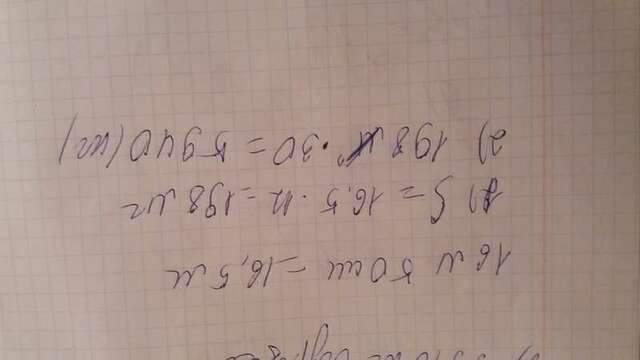 16 м 50 см = 16,5 м
1) S = 16,5 · 12 = 198 м²
2) 198 · 30 = 5940 (кг)